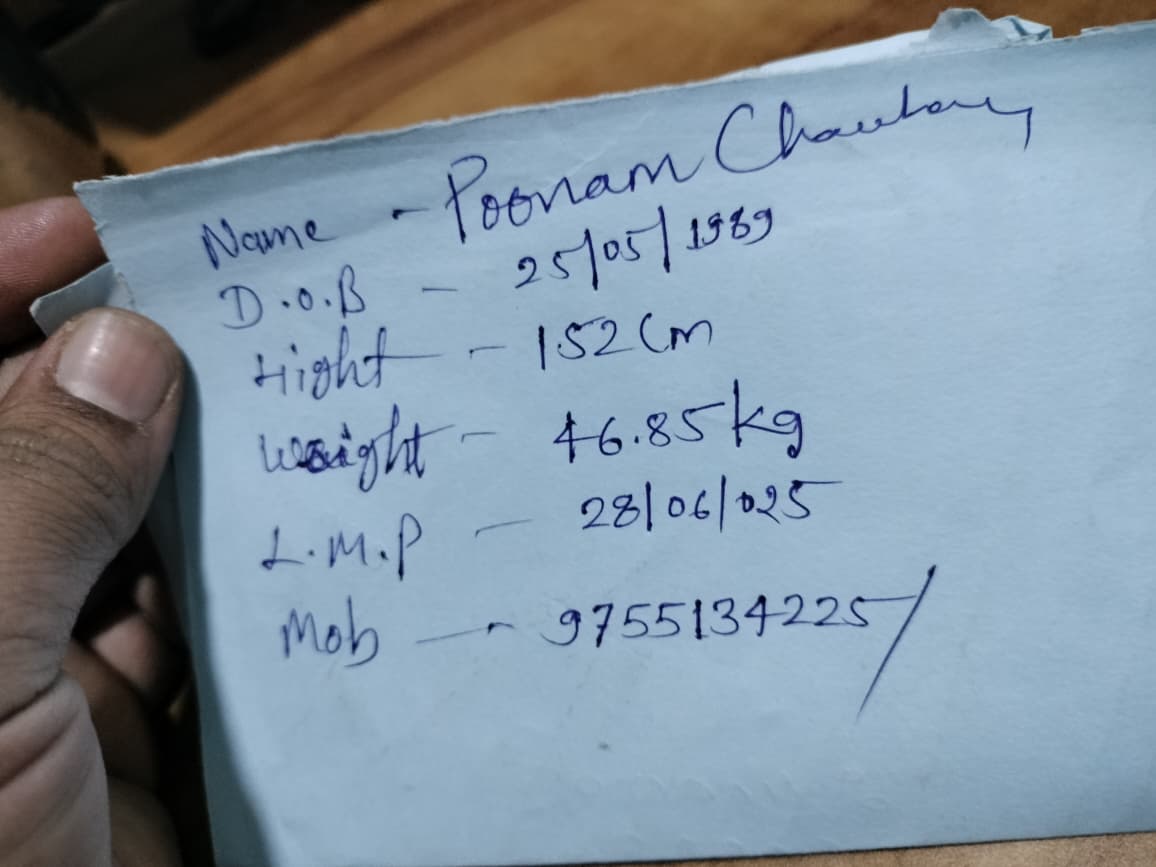 Name - Poonam
D.O.B - 25/05/1989
Hight - 152 Cm
Weight - 46.85 kg
L.M.P - 28/06/025
Mob - 9755134225/